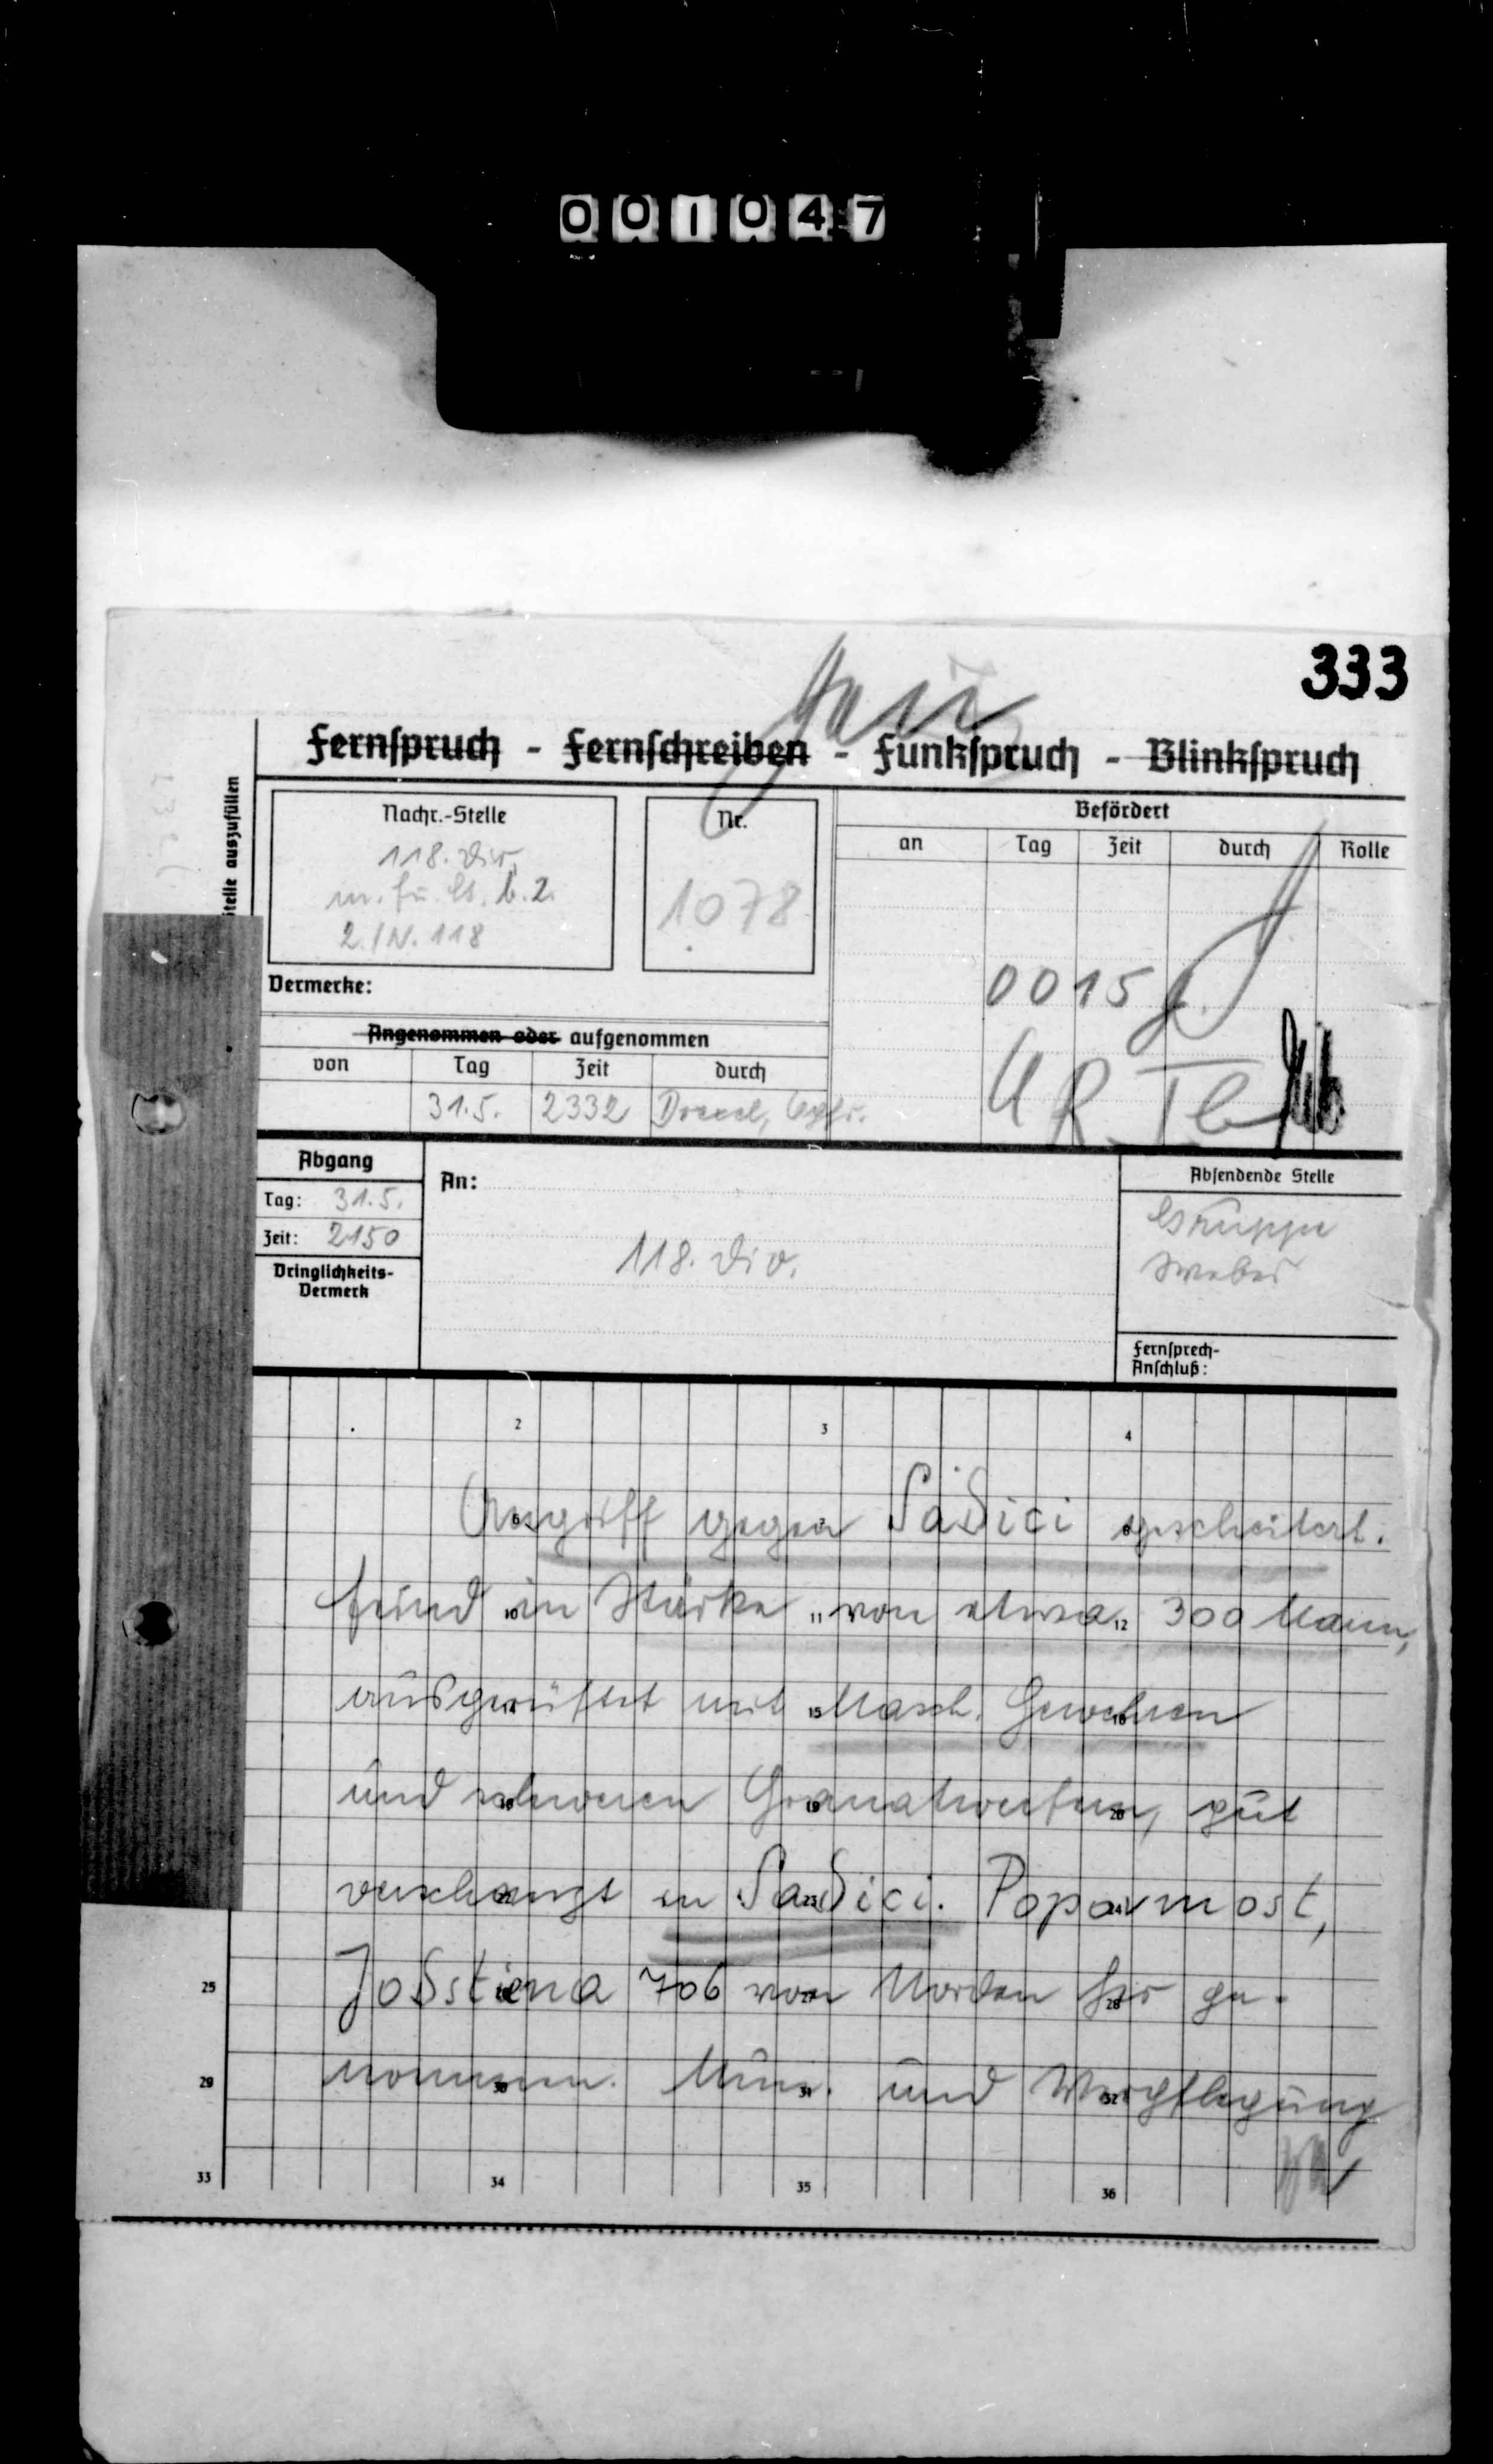 001047
333
Fernspruch - Fernschreiben - Funkspruch - Blinkspruch
telle auszufüllen
Nachr.-Stelle
118. Div.
m. Fu. b. 2.
2./N. 118
Nr.
1078
Befördert
an Tag Zeit durch Rolle
0015
Vermerke:
Angenommen oder aufgenommen
von Tag Zeit durch
31.5. 2332 Gefr.
Abgang
Tag: 31.5.
Zeit: 2150
Dringlichkeits-
Vermerk
An:
118. Div.
Absendende Stelle
Gruppe
Weber
Fernsprech-
Anschluß:
2 3 4
Angriff gegen Sadici gescheitert.
Feind in Stärke von etwa 300 Mann,
10 11 12
ausgerüstet mit Masch. Gewehren
14 15 16
und schweren Granatwerfern, gut
18 19 20
verschanzt in Sadici. Popovmost,
25
706 von Norden her ge-
28
29
nommen. Mun. und Verpflegung
30 31 32
33 34 35 36